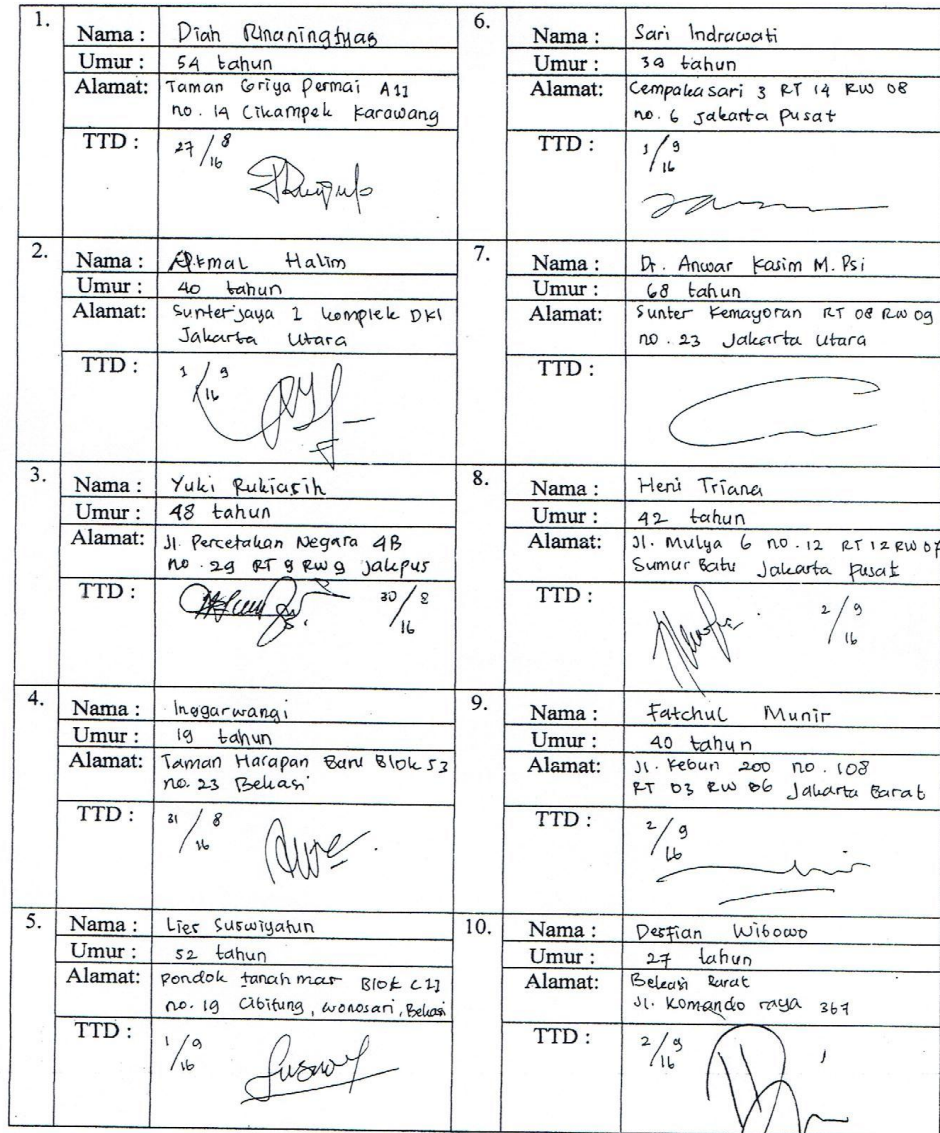 1.
Nama : Diah Rinaningtyas
Umur : 54 tahun
Alamat: Taman Griya Permai A11
no. 14 Cikampek Karawang
TTD : 27/8/16
2.
Nama : Halim
Umur : 40 tahun
Alamat: Sunterjaya 1 komplek DKI
Jakarta Utara
TTD : 1/9/16
3.
Nama : Yuki Rukiasih
Umur : 48 tahun
Alamat: Jl. Percetakan Negara 4B
no. 29 RT 9 RW 9 Jakpus
TTD : 30/8/16
4.
Nama : Inggarwangi
Umur : 19 tahun
Alamat: Taman Harapan Baru Blok S3
no. 23 Bekasi
TTD : 31/8/16
5.
Nama : Lies Suswiyatun
Umur : 52 tahun
Alamat: Pondok tanah mas Blok C11
no. 19 Cibitung, wonosari, Bekasi
TTD : 1/9/16
6.
Nama : Sari Indrawati
Umur : 39 tahun
Alamat: Cempakasari 3 RT 14 RW 08
no. 6 Jakarta Pusat
TTD : 1/9/16
7.
Nama : Dr. Anwar Kasim M. Psi
Umur : 68 tahun
Alamat: Sunter Kemayoran RT 08 RW 09
no. 23 Jakarta Utara
TTD :
8.
Nama : Heni Triana
Umur : 42 tahun
Alamat: Jl. Mulya 6 no. 12 RT 12 RW 07
Sumur Batu Jakarta Pusat
TTD : 2/9/16
9.
Nama : Fatchul Munir
Umur : 40 tahun
Alamat: Jl. Kebun 200 no. 108
RT 03 RW 06 Jakarta Barat
TTD : 2/9/16
10.
Nama : Desfian Wibowo
Umur : 27 tahun
Alamat: Bekasi Barat
Jl. Komando raya 367
TTD : 2/9/16